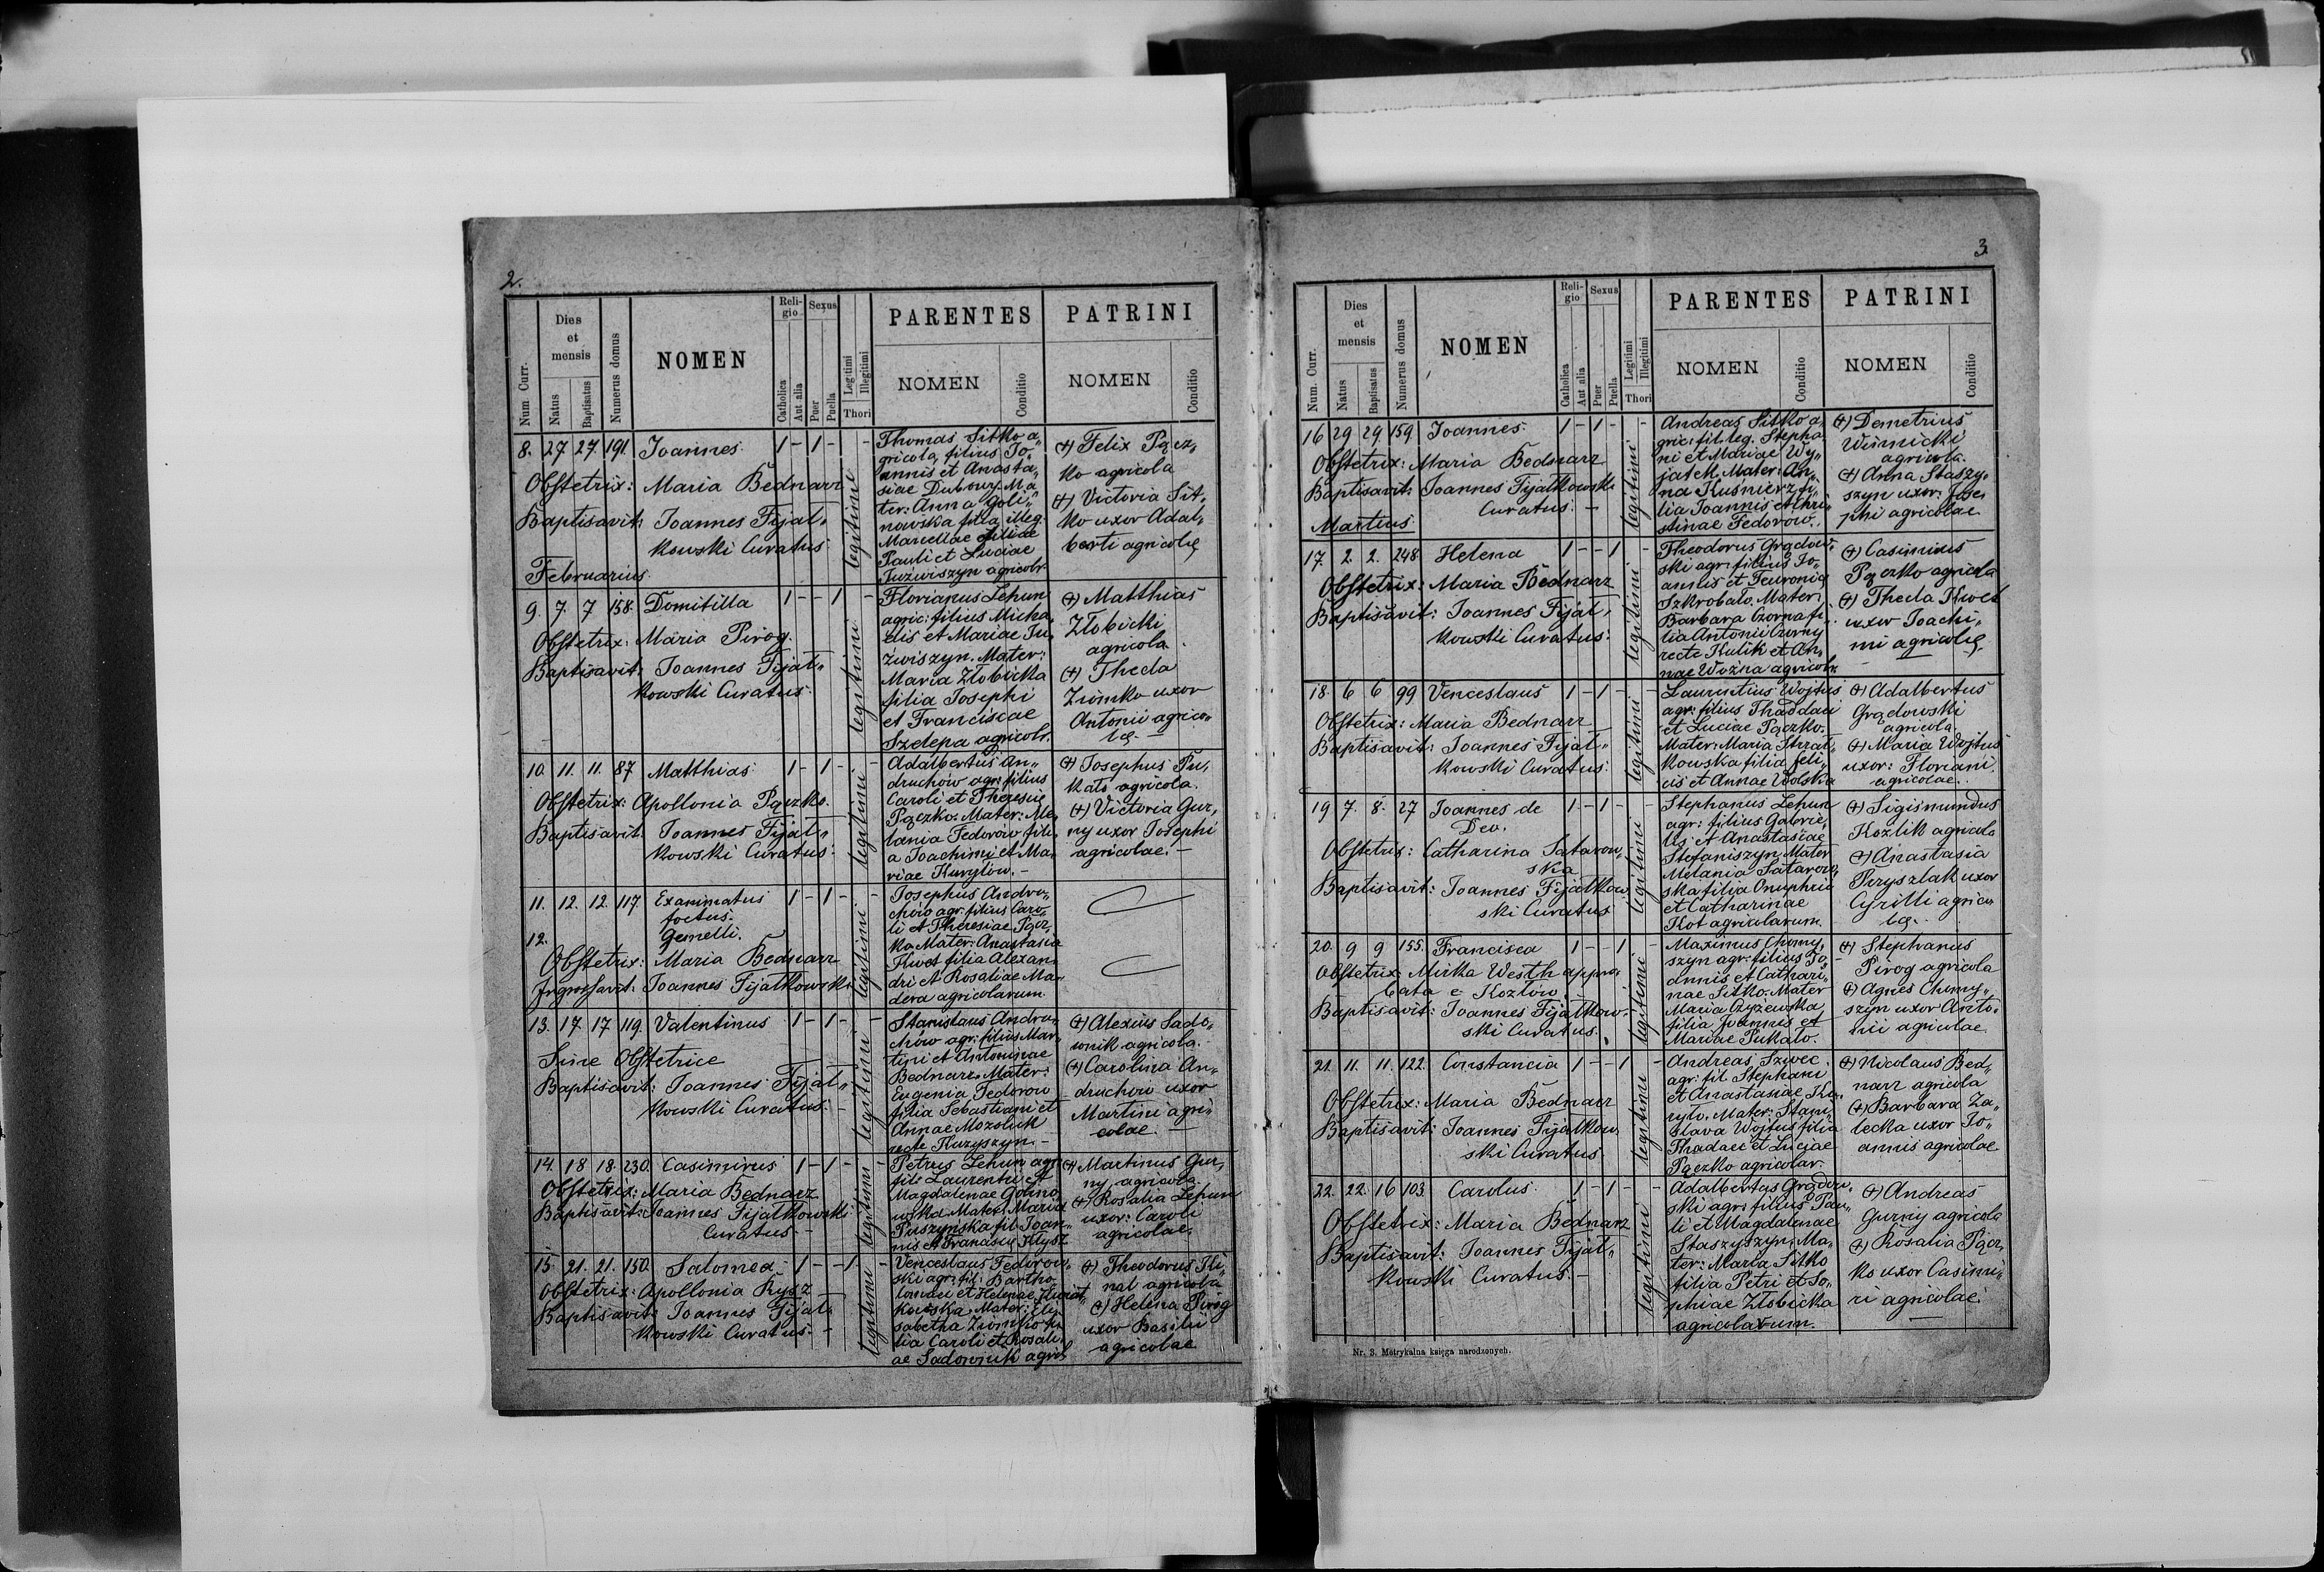 2.
Num Curr.
Dies et mensis
Natus
Baptisatus
Numerus domus
NOMEN
Religio
Catholica
Aut alia
Sexus
Puer
Puella
Legitimi
Illegitimi
Thori
PARENTES
NOMEN
Conditio
PATRINI
NOMEN
Conditio
8. 27 27. 191. Joannes 1 - 1 - -
Obstetrix: Maria Bednarz
Baptisavit: Joannes Fijał„
kowski Curatus
legitimi
Thomas Sitko a„
gricola, filius Jo„
annis et Anasta„
siae Dubowy. Ma
ter: Anna Goli„
nowska filia illeg.
Marcellae filiae
Pauli et Luciae
Juźwiszyn agricolr.
(+) Felix Pącz„
ko agricola
(+) Victoria Sit„
ko uxor Adal„
berti agricolę
Februarius.
9. 7. 7 158. Domitilla 1 - - 1 -
Obstetrix: Maria Pirog.
Baptisavit: Joannes Fijał„
kowski Curatus.
legitimi
Florianus Lehun
agric: filius Micha„
elis et Mariae Ju„
źwiszyn. Mater:
Maria Złobicka
filia Josephi
et Franciscae
Szelepa agricolr.
(+) Matthias
Złobicki
agricola
(+) Thecla
Ziomko uxor
Antonii agrico„
lę. -
10. 11. 11. 87 Matthias 1 - 1 - -
Obstetrix: Apollonia Pączko.
Baptisavit: Joannes Fijał„
kowski Curatus.
legitimi
Adalbertus An„
druchów agr: filius
Caroli et Theresię
Pączko. Mater: Me„
lania Fedorów fili„
a Joachimi et Ma„
riae Kuryłów. -
(+) Josephus Pu„
kało agricola.
(+) Victoria Gur„
ny uxor Josephi
agricolae. -
11. 12. 12. 117. Exanimatus 1 - 1 - -
foetus.
12. Gemelli.
Obstetrix: Maria Bednarz
Ingressavit: Joannes Fijałkowski
legitimi
Josephus Andru„
chów agr: filius Caro„
li et Theresiae Pącz„
ko. Mater: Anastasia
Kwet filia Alexan„
dri et Rosaliae Ma„
dera agricolarum.
13. 17. 17 119. Valentinus 1 - 1 - -
Sine Obstetrice
Baptisavit: Joannes Fijał„
kowski Curatus. -
legitimi
Stanislaus Andru„
chów agr: filius Mar„
tini et Antoninae
Bednarz. Mater:
Eugenia Fedorow
filia Sebastiani et
Annae Mozoluk
recte Huzyszyn. -
(+) Alexius Sado„
wnik agricola.
(+) Carolina An„
druchow uxor
Martini agri„
colae. -
14. 18 18. 230. Casimirus 1 - 1 - -
Obstetrix: Maria Bednarz
Baptisavit: Joannes Fijałkowski
Curatus. -
legitimi
Petrus Lehun agr:
fil: Laurentii et
Magdalenae Golino„
wska. Mater: Maria
Puszyńska fil: Joan„
nis et Franciscę Kłysz
(+) Martinus Gur„
ny agricola.
(+) Rosalia Lehun
uxor: Caroli
agricolae.
15. 21. 21. 150. Salomea 1 - - 1. -
Obstetrix: Apollonia Rysz
Baptisavit: Joannes Fijał„
kowski Curatus. -
legitimi
Venceslaus Fedorow„
ski agr: fil: Bartho„
lomaei et Helenae Kwiat„
kowska. Mater: Eli„
sabetha Ziomko fi„
lia Caroli et Rosali„
ae Sadownik agricl
(+) Theodorus Hli„
nal agricola
(+) Helena Pirog
uxor Basilii
agricolae
3.
Num. Curr.
Dies et mensis
Natus
Baptisatus
Numerus domus
NOMEN
Religio
Catholica
Aut alia
Sexus
Puer
Puella
Legitimi
Illegitimi
Thori
PARENTES
NOMEN
Conditio
PATRINI
NOMEN
Conditio
16 29 29. 159. Joannes 1 - 1 - -
Obstetrix: Maria Bednarz
Baptisavit: Joannes Fijałkowski
Curatus. -
legitimi
Andreas Sitko a„
gric: fil. leg. Stepha„
ni et Mariae Wy„
jatek. Mater: An„
na Kuśnierz fi„
lia Joannis et Chri„
stinae Fedorow.
(+) Demetrius
Wiśnicki
agricola.
(+) Anna Staszy„
szyn uxor: Jose„
phi agricolae
Martius.
17. 2. 2. 248. Helena 1 - - 1 -
Obstetrix: Maria Bednarz
Baptisavit: Joannes Fijał„
kowski Curatus.
legitimi
Theodorus Grądow„
ski agr: filius Jo„
annis et Feuronię
Szkrobało. Mater:
Barbara Czorna fi„
lia Antonii Czorny
recte Kulik et An„
nae Woźna agricolr.
(+) Casimirus
Pączko agricola
(+) Thecla Kwet
uxor Joachi„
mi agricolę.
18. 6 6 99 Venceslaus 1 - 1 - -
Obstetrix: Maria Bednarz
Baptisavit: Joannes Fijał„
kowski Curatus.
legitimi
Laurentius Wojtuś
agr: filius Thaddaei
et Luciae Pączko.
Mater: Maria Strzał„
kowska filia Feli„
cis et Annae Wolska
(+) Adalbertus
Grądowski
agricola.
(+) Maria Wojtuś
uxor: Floriani.
agricolae.
19 7. 8. 27 Joannes de 1 - 1 - -
Deo.
Obstetrix: Catharina Satarow„
ska
Baptisavit: Joannes Fijałkow„
ski Curatus
legitimi
Stephanus Lehun
agr: filius Gabrie„
lis et Anastasiae
Stefaniszyn. Mater
Melania Satarow„
ska filia Onuphrii
et Catharinae
Kot agricolarum.
(+) Sigismundus
Kozlik agricola
(+) Anastasia
Przyszlak uxor
Cyrilli agrico„
lę.
20. 9 9 155. Francisca 1 - - 1 -
Obstetrix: Mirka Westh appro„
bata e Kozłów
Baptisavit: Joannes Fijałkow„
ski Curatus.
legitimi
Maximus Chomy„
szyn agr: filius Jo„
annis et Cathari„
nae Sitko. Mater
Maria Czyżewska
filia Joannis et
Mariae Pukało.
(+) Stephanus
Pirog agricola
(+) Agnes Chomy„
szyn uxor Anto„
nii agricolae.
21. 11. 11. 122. Constancia 1 - - 1 -
Obstetrix: Maria Bednarz
Baptisavit: Joannes Fijałkow„
ski Curatus
legitimi
Andreas Szwec
agr: fil Stephani
et Anastasiae Ku„
ryło. Mater: Stani„
slava Wojtuś filia
Thadaei et Luciae
Pączko agricolar.
(+) Nicolaus Bed„
narz agricola
(+) Barbara Za„
lecka uxor Jo„
annis agricolae.
22. 22. 16 103. Carolus. 1 - 1 - -
Obstetrix: Maria Bednarz
Baptisavit: Joannes Fijał„
kowski Curatus. -
legitimi
Adalbertus Grądow„
ski agr: filius Pau„
li et Magdalenae
Staszyszyn. Ma„
ter: Maria Sitko
filia Petri et So„
phiae Złobicka
agricolarum.
(+) Andreas
Gurny agricola
(+) Rosalia Pącz„
ko uxor Casimi„
ri agricolae.
Nr. 3. Metrykalna księga narodzonych.